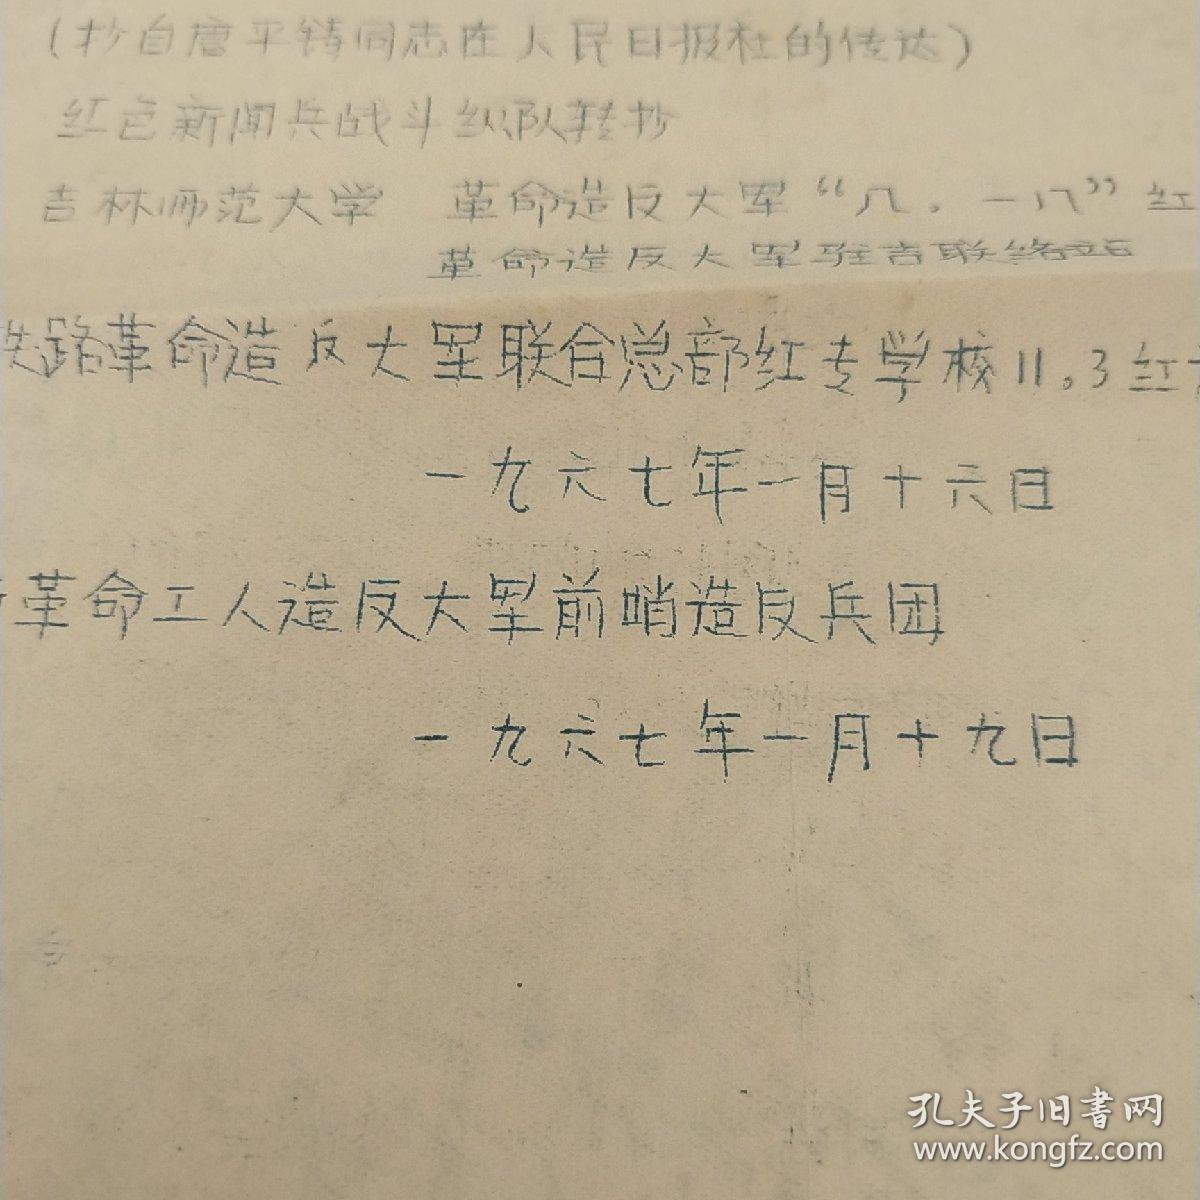 （抄自唐平铸同志在人民日报社的传达）
红色新闻兵战斗纵队转抄
吉林师范大学 革命造反大军“八．一八”红
革命造反大军驻吉联络站
铁路革命造反大军联合总部红专学校11.3红
一九六七年一月十六日
革命工人造反大军前哨造反兵团
一九六七年一月十九日
孔夫子旧書网
www.kongfz.com